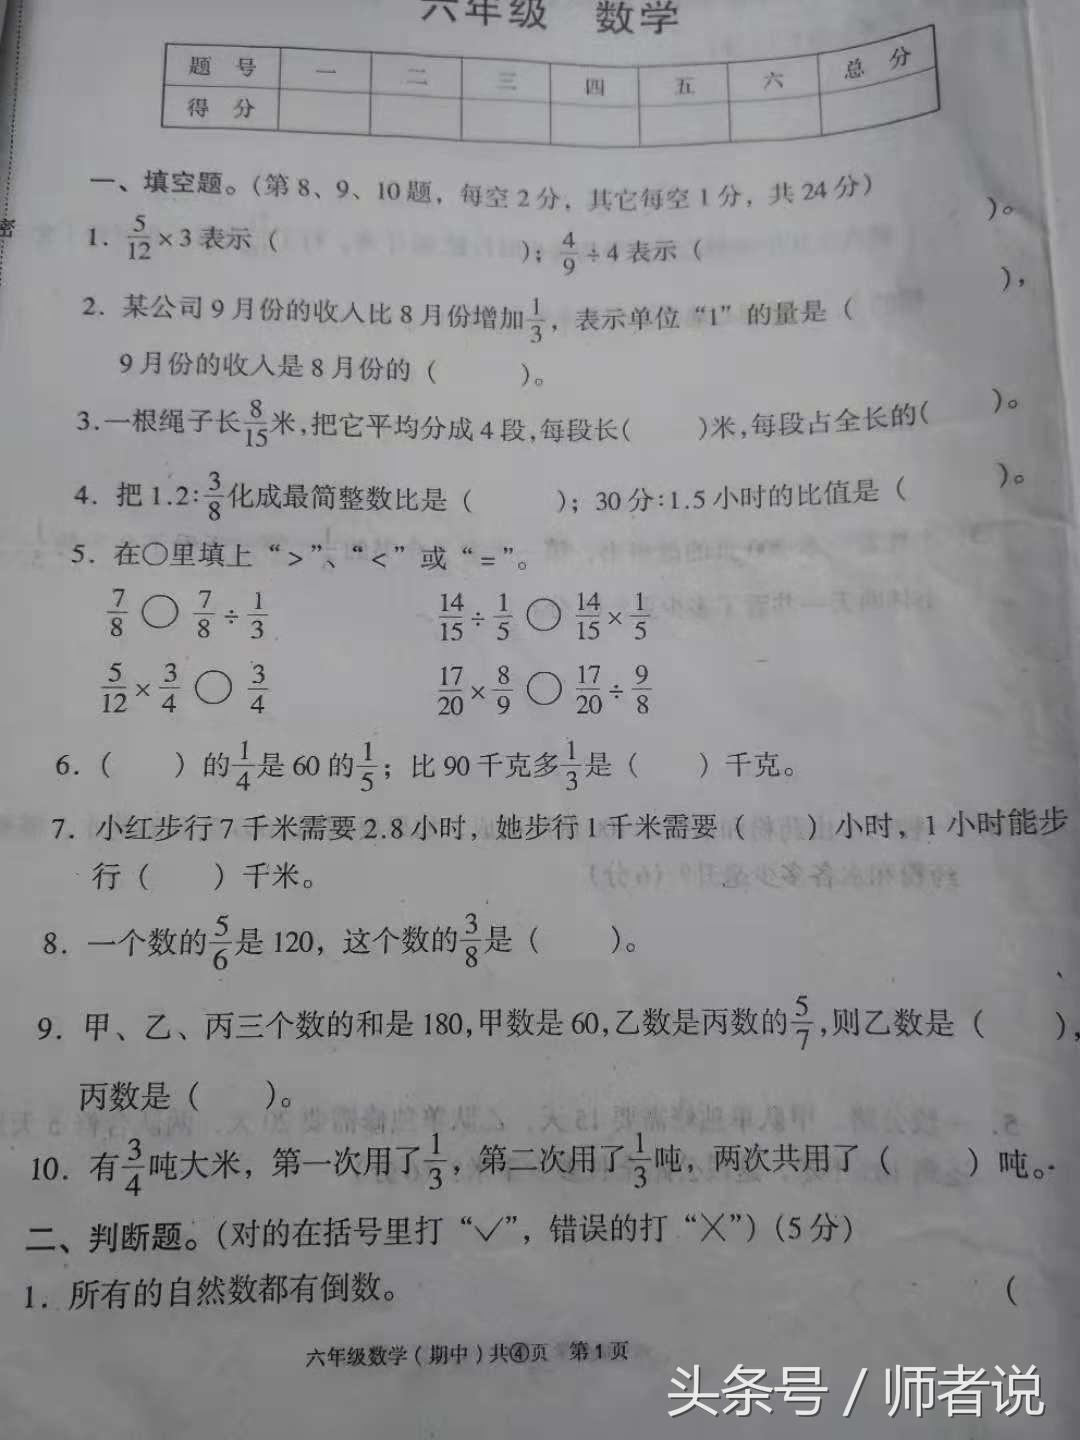 六年级 数学
题号 一 二 三 四 五 六 总分
得分
一、填空题。(第8、9、10题，每空2分，其它每空1分，共24分)
1. 5/12×3表示( ); 4/9÷4表示( )。
2. 某公司9月份的收入比8月份增加1/3，表示单位“1”的量是( )，
9月份的收入是8月份的( )。
3.一根绳子长8/15米,把它平均分成4段,每段长( )米,每段占全长的( )。
4. 把1.2:3/8化成最简整数比是( ); 30分:1.5小时的比值是( )。
5. 在○里填上“>”、“<”或“=”。
7/8 ○ 7/8÷1/3 14/15÷1/5 ○ 14/15×1/5
5/12×3/4 ○ 3/4 17/20×8/9 ○ 17/20÷9/8
6. ( )的1/4是60的1/5; 比90千克多1/3是( )千克。
7. 小红步行7千米需要2.8小时，她步行1千米需要( )小时，1小时能步
行( )千米。
8. 一个数的5/6是120，这个数的3/8是( )。
9. 甲、乙、丙三个数的和是180,甲数是60,乙数是丙数的5/7,则乙数是( ),
丙数是( )。
10. 有3/4吨大米，第一次用了1/3，第二次用了1/3吨，两次共用了( )吨。
二、判断题。(对的在括号里打“√”，错误的打“╳”)(5分)
1. 所有的自然数都有倒数。 (
六年级数学(期中)共④页 第1页
头条号 / 师者说
密